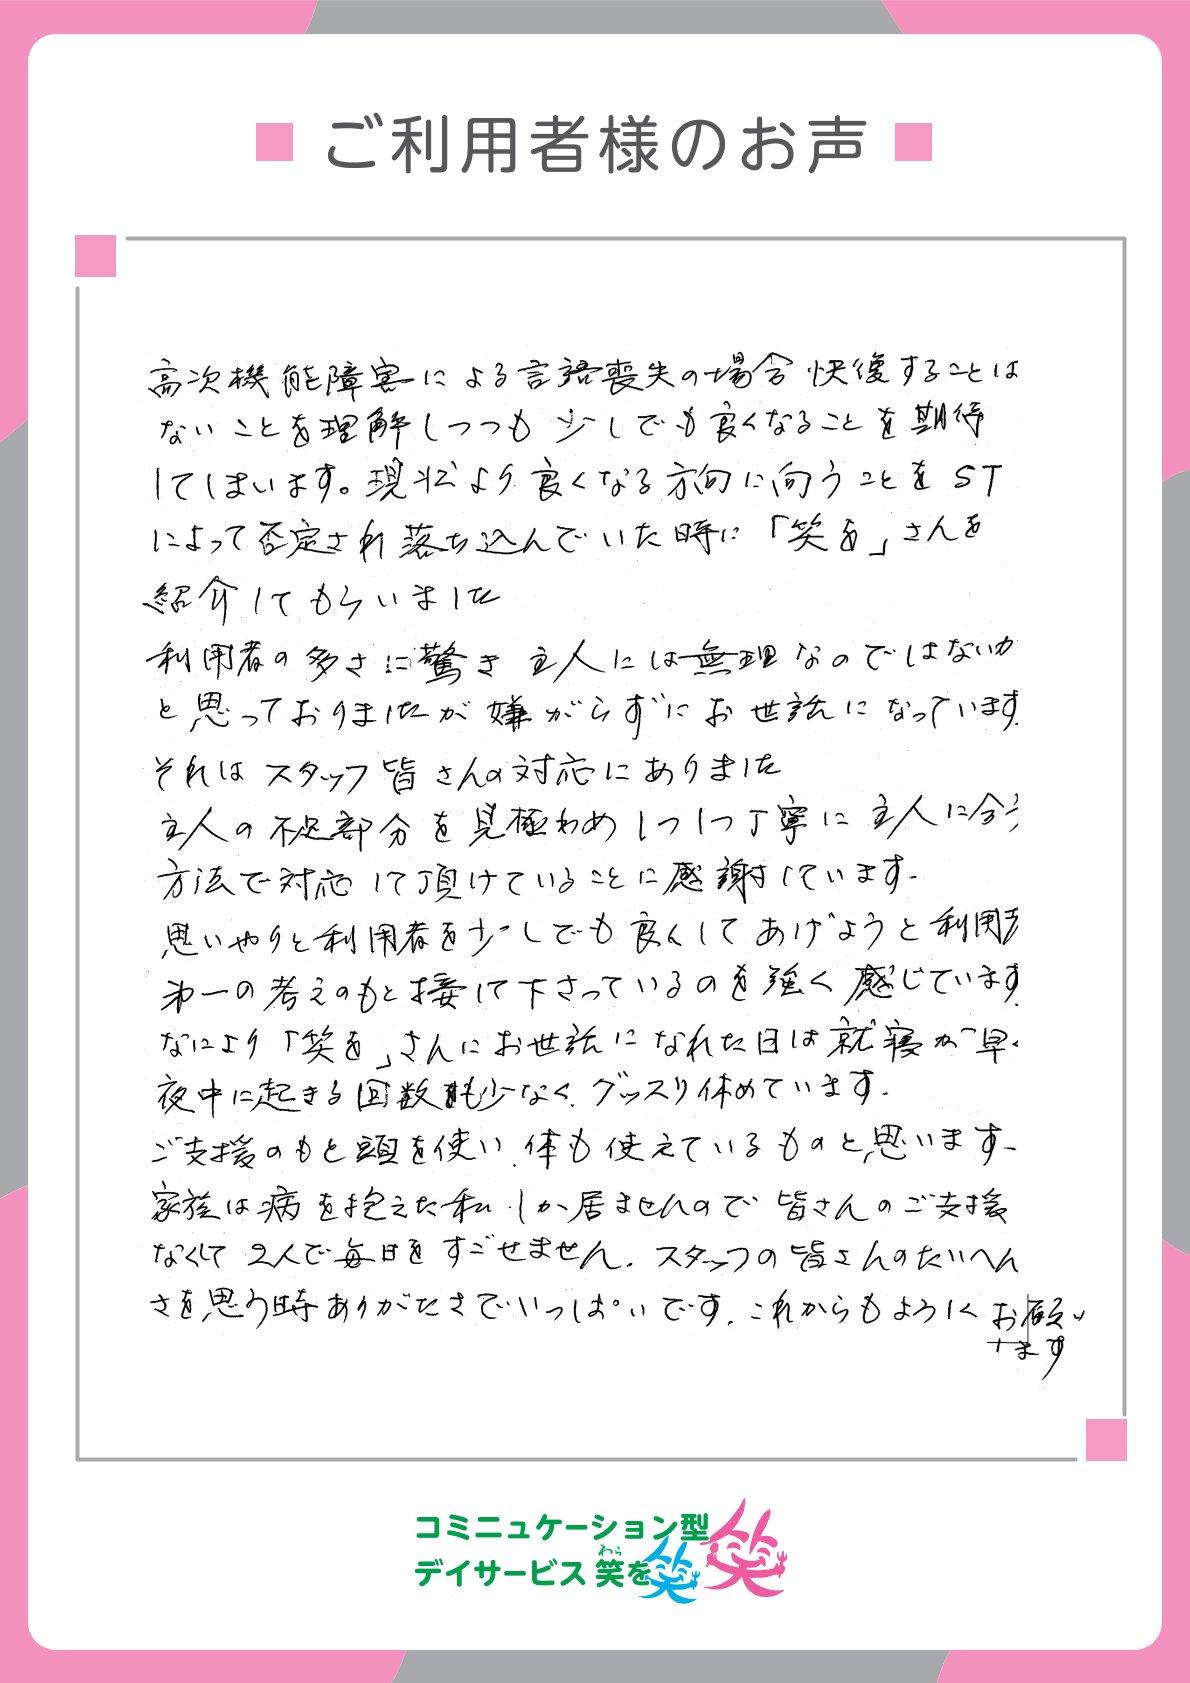 ご利用者様のお声
高次機能障害による言語喪失の場合 快復することは
ないことを理解しつつも 少しでも良くなることを期待
してしまいます。現状より良くなる方向に向うことをST
によって否定され落ち込んでいた時に「笑を」さんを
紹介してもらいました
利用者の多さに驚き 主人には無理なのではないか
と思っておりましたが嫌がらずにお世話になっています
それはスタッフ皆さんの対応にありました
主人の不足部分を見極わめしつしつ丁寧に主人に合う
方法で対応して頂けていることに感謝しています.
思いやりと利用者を少しでも良くしてあげようと利用者
第一の考えのもと接して下さっているのを強く感じています
なにより「笑を」さんにお世話になれた日は就寝が早く
夜中に起きる回数も少なく.グッスリ休めています.
ご支援のもと頭を使い.体も使えているものと思います.
家族は病を抱えた私しか居ませんので皆さんのご支援
なくして2人で毎日をすごせません.スタッフの皆さんのたいへん
さを思う時ありがたさでいっぱいです.これからもよろしくお願い
します
コミニュケーション型
デイサービス 笑を
わら
笑
笑